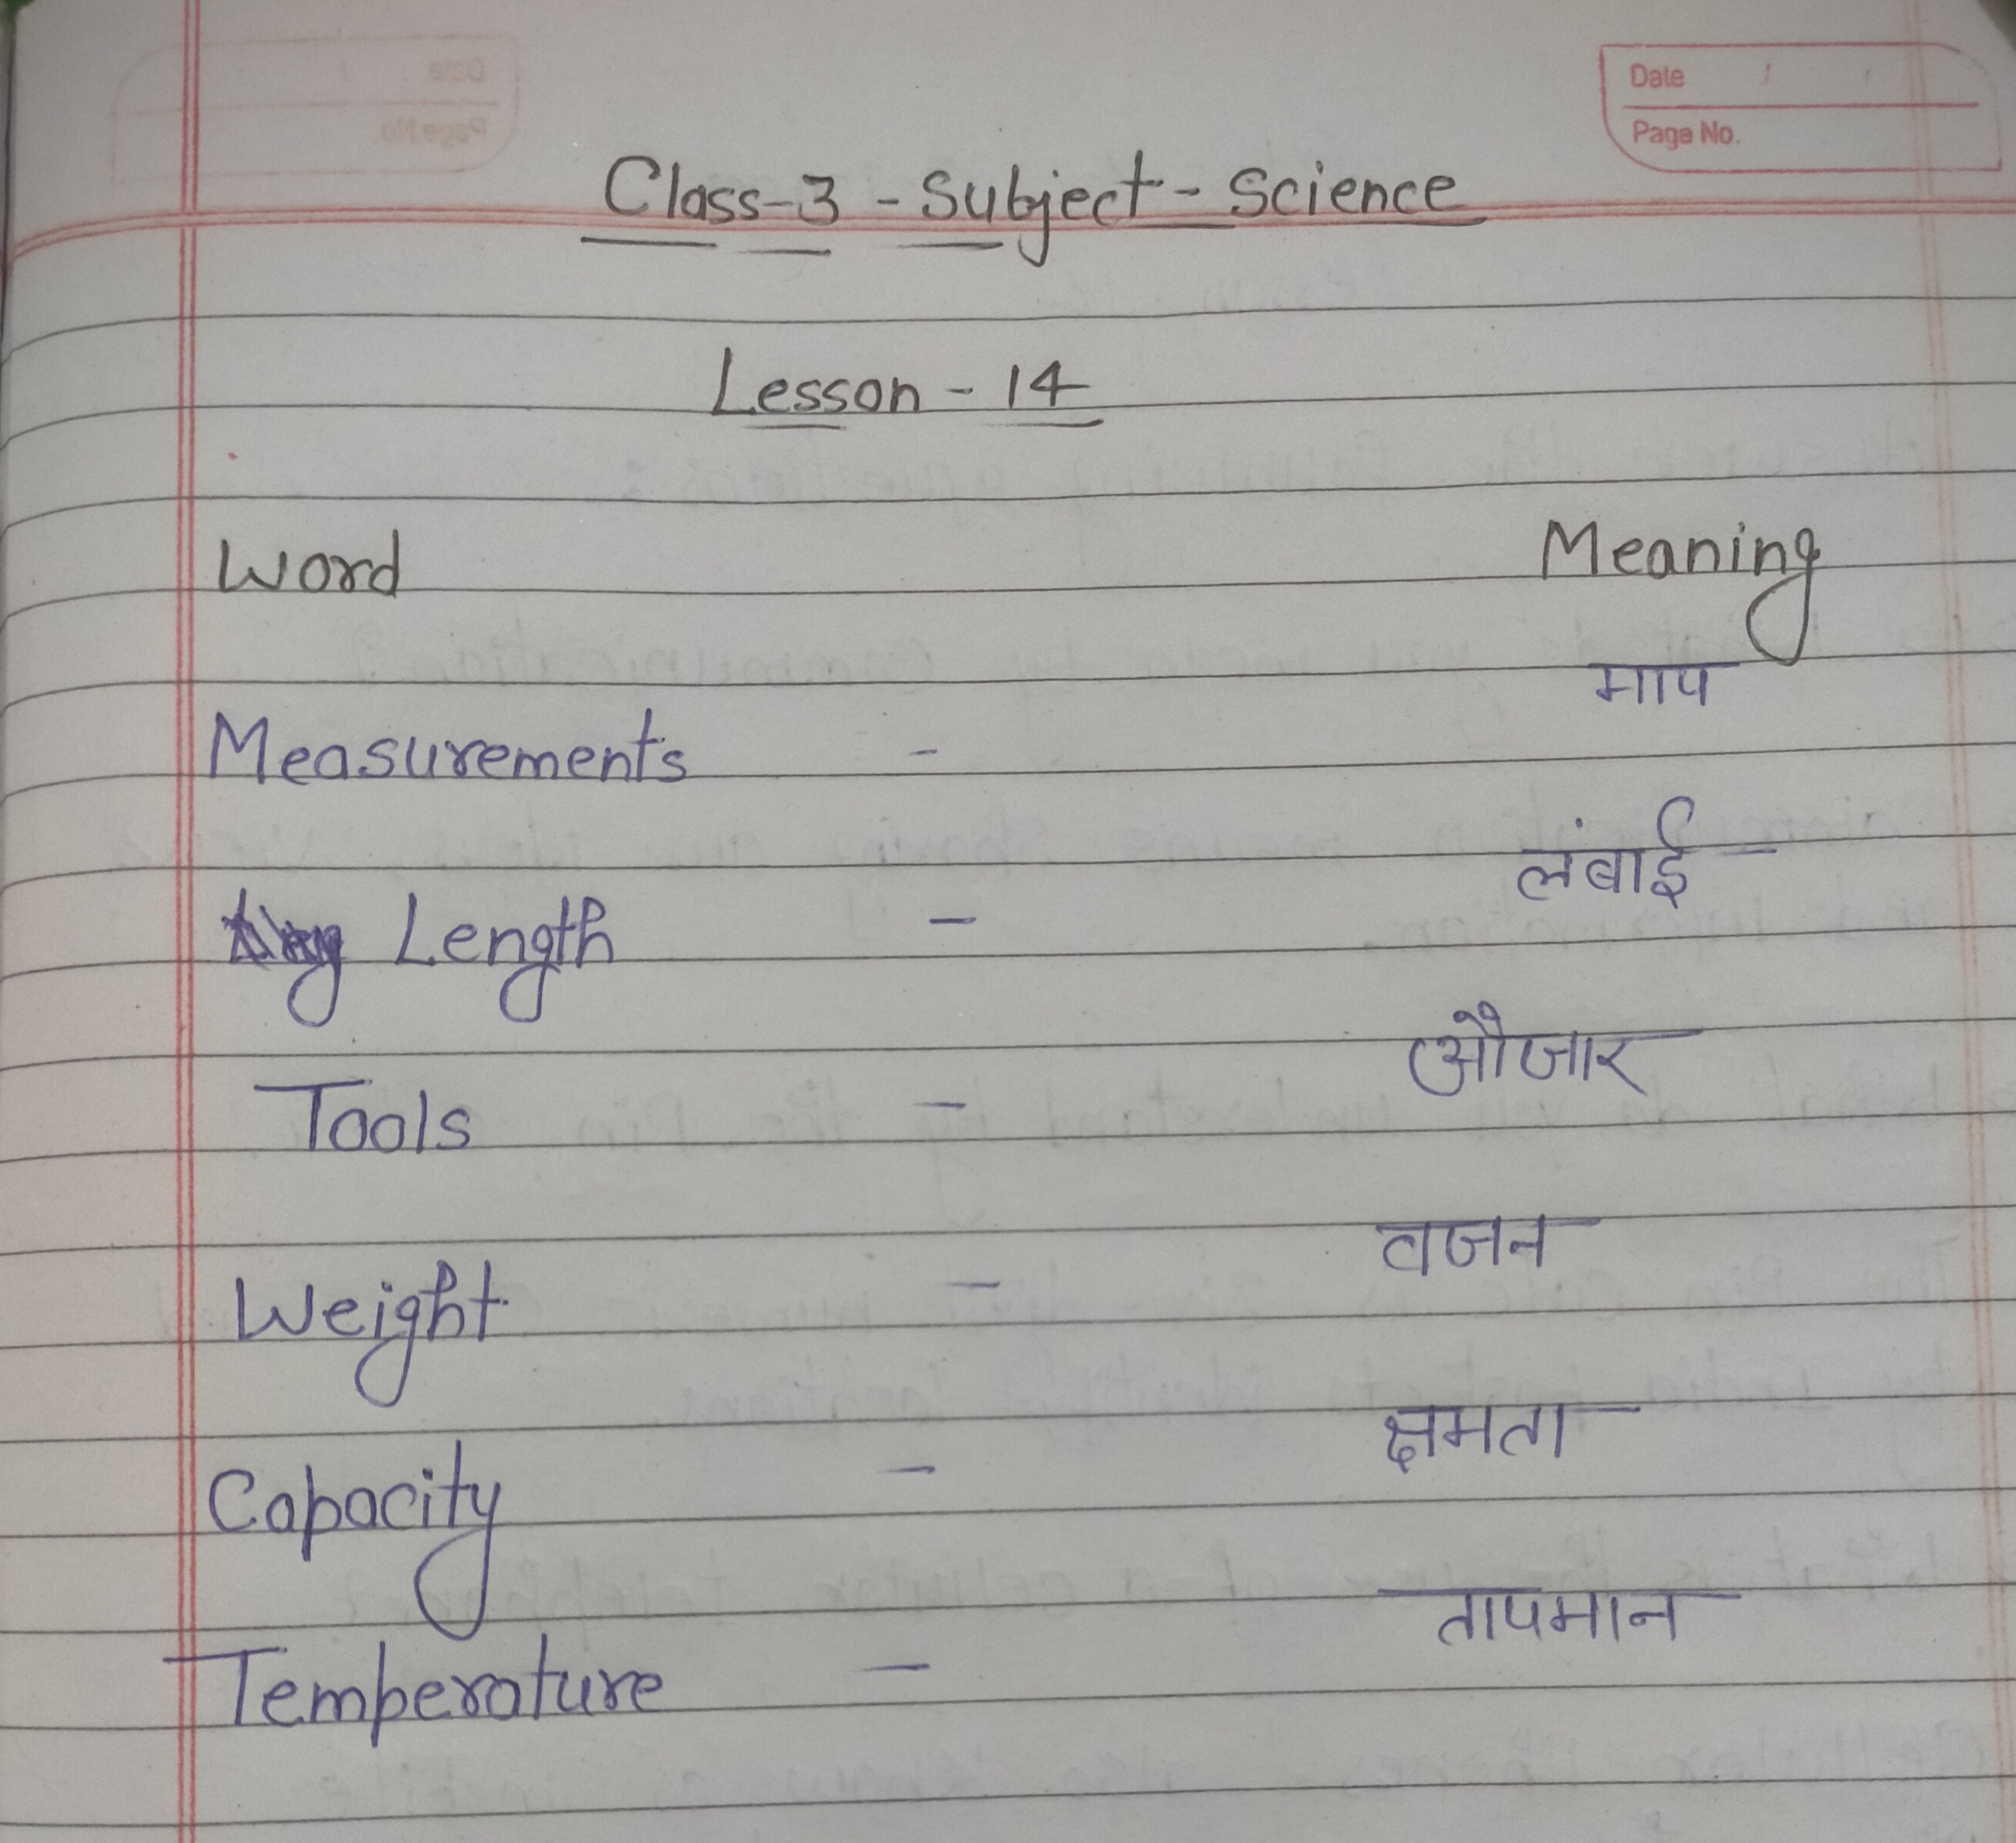 Date / /
Page No.
Class-3 - Subject - Science
Lesson - 14
Word Meaning
Measurements - माप
Length - लंबाई
Tools - औजार
Weight - वजन
Capacity - क्षमता
Temperature - तापमान